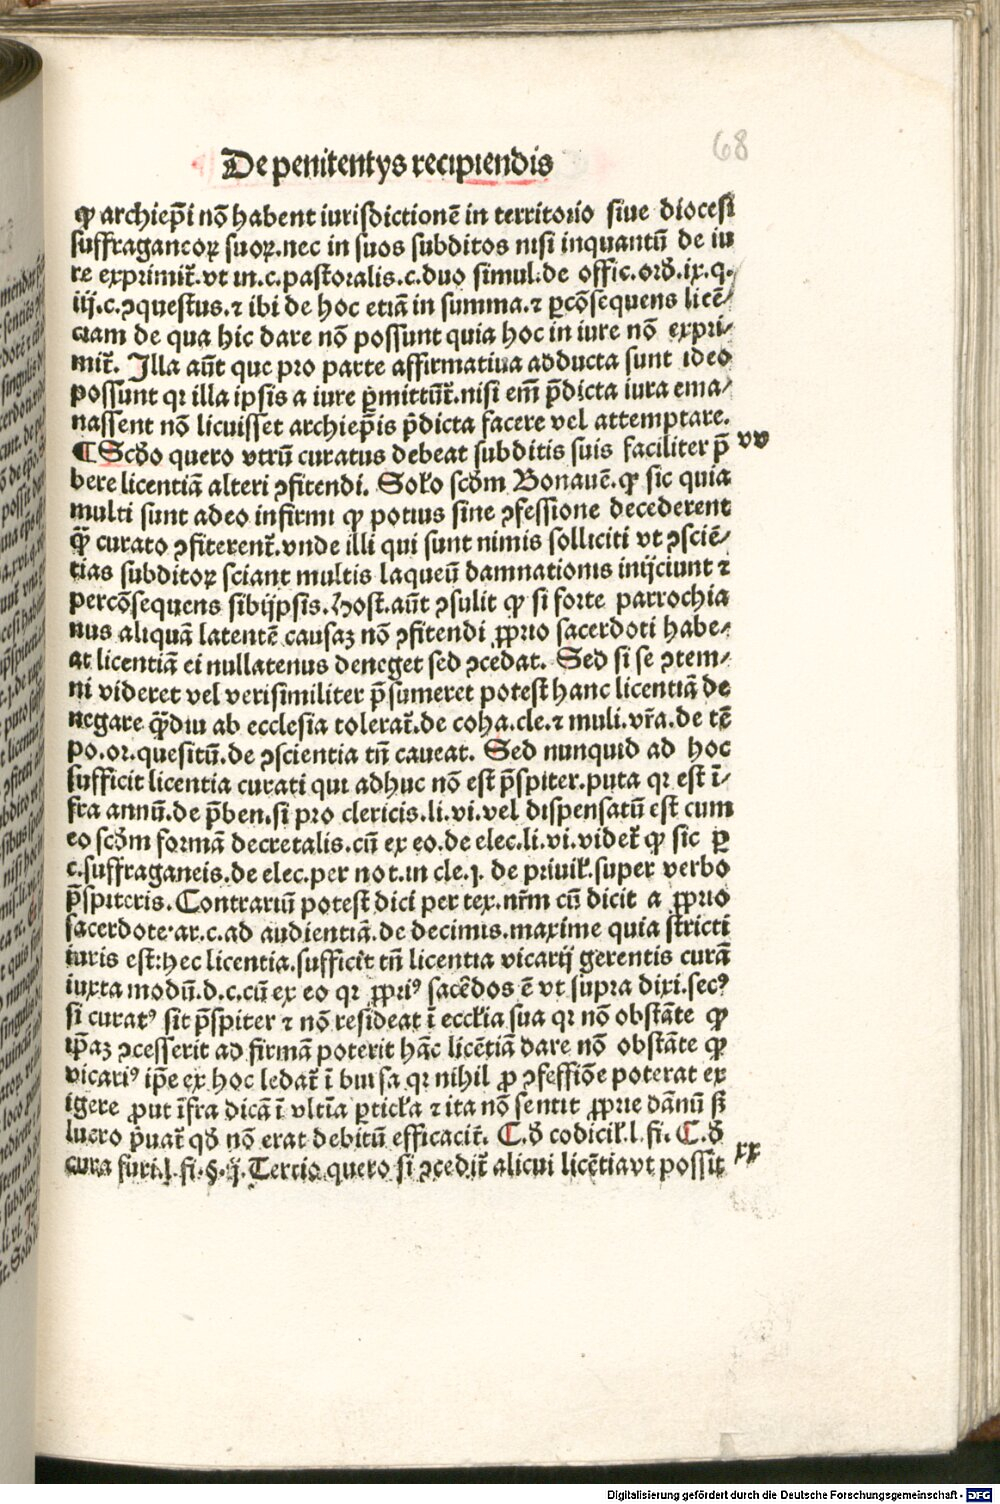 68
De penitentys recipiendis
ꝙ archiep̄i nō habent iurisdictionē in territorio siue diocesi
suffraganeoꝝ suoꝝ.nec in suos subditos nisi inquantū de iu
re exprimit᷑.vt in.c.pastoralis.c.duo simul.de offic.ord̄.ix.q.
iij.c.ꝯquestus.⁊ ibi de hoc etiā in summa.⁊ ꝑcōsequens licē⸗
ciam de qua hic dare nō possunt quia hoc in iure nō expri⸗
mit᷑. Illa aūt que pro parte affirmatiua adducta sunt ideo
possunt qꝛ illa ipsis a iure ꝑmittūt᷑.nisi em̄ p̄dicta iura ema⸗
nassent nō licuisset archiep̄is p̄dicta facere vel attemptare.
¶ Scd̄o quero vtrū curatus debeat subditis suis faciliter p̄
vv
bere licentiā alteri ꝯfitendi. Soło scd̄m Bonauē.ꝙ sic quia
multi sunt adeo infirmi ꝙ potius sine ꝯfessione decederent
ꝙ̄ curato ꝯfiterent᷑.vnde illi qui sunt nimis solliciti vt ꝯsciē⸗
tias subditoꝝ sciant multis laqueū damnationis inijciunt ⁊
percōsequens sibijpsis.Host.aūt ꝯsulit ꝙ si forte parrochia
nus aliquā latentē causaꝫ nō ꝯfitendi ꝓprio sacerdoti habe⸗
at licentiā ei nullatenus deneget sed ꝯcedat. Sed si se ꝯtem⸗
ni videret vel verisimiliter p̄sumeret potest hanc licentiā de
negare ꝙ̄diu ab ecclesia tolerat᷑.de coha.cle.⁊ muli.vr̄a.de tē
po.or.quesitū.de ꝯscientia tn̄ caueat. Sed nunquid ad hoc
sufficit licentia curati qui adhuc nō est p̄spiter.puta qꝛ est ī⸗
fra annū.de p̄ben.si pro clericis.li.vi.vel dispensatū est cum
eo scd̄m formā decretalis.cū ex eo.de elec.li.vi.videt᷑ ꝙ sic ꝑ
c.suffraganeis.de elec.per not.in cle.j. de priuił.super verbo
p̄spiteris.Contrariū potest dici per tex.nr̄m cū dicit a ꝓprio
sacerdote.ar.c.ad audientiā.de decimis.maxime quia stricti
iuris est:hec licentia.sufficit tn̄ licentia vicarij gerentis curā
iuxta modū.d.c.cū ex eo qꝛ ꝓpriꝰ sac̄edos ē vt supra dixi.secꝰ
si curatꝰ sit p̄spiter ⁊ nō resideat ī eccłia sua qꝛ nō obstāte ꝙ
ip̄aꝫ ꝯcesserit ad firmā poterit hāc licētiā dare nō obstāte ꝙ
vicariꝰ ip̄e ex hoc ledat᷑ ī bursa qꝛ nihil ꝓ ꝯfessiōe poterat ex
igere ꝓut īfra dicā ī vltīa ꝑticła ⁊ ita nō sentit ꝓprie dānū sꝫ
lucro p̄uat᷑ qd̄ nō erat debitū efficacit᷑. C.d̄ codicił.l.fi. C.d̄
cura furi.l.fi.§.ij. Tercio quero si ꝯcedit᷑ alicui licētia vt possit
xx
Digitalisierung gefördert durch die Deutsche Forschungsgemeinschaft - DFG